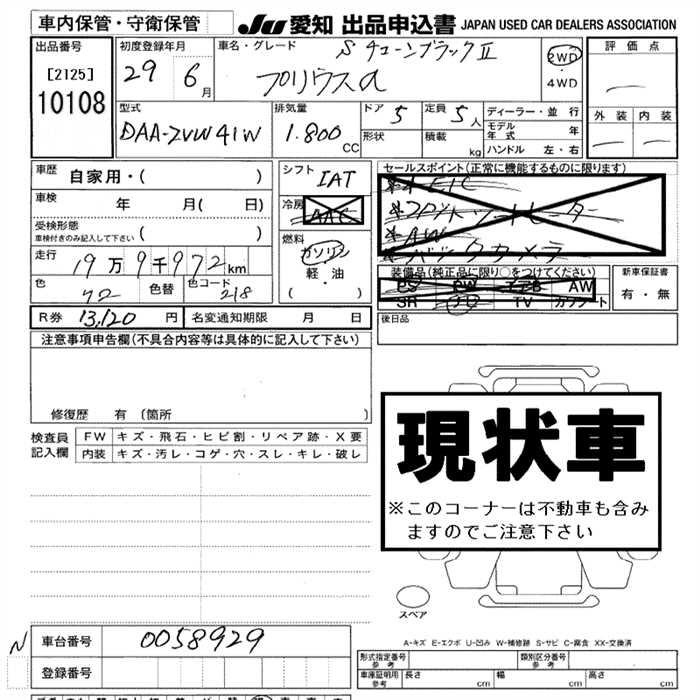 車内保管・守衛保管
JU 愛知 出品申込書 JAPAN USED CAR DEALERS ASSOCIATION
出品番号
[2125]
10108
初度登録年月
29 6月
車名・グレード
S チューンブラックⅡ
プリウスα
2WD
・
4WD
評価点
外装 内装
型式
DAA-ZVW41W
排気量
1.800 CC
ドア 5
形状
定員 5人
積載 kg
ディーラー・並行
モデル年式 年
ハンドル 左・右
車歴 自家用・( )
車検 年 月( 日)
受検形態
車検付きのみ記入して下さい ( )
走行 19万9千972km
色 色替 色コード 218
シフト
IAT
冷房
AAC
燃料
ガソリン
・
軽油
( ・ )
セールスポイント(正常に機能するものに限ります)
*ETC
*フロントシートヒーター
*AW
*バックカメラ
装備品(純正品に限り○をつけてください)
PS PW エアB AW
SR TV カワシート
新車保証書
有・無
R券 13,120 円
名変通知期限 月 日
後日品
注意事項申告欄(不具合内容等は具体的に記入して下さい)
修復歴 有 (箇所 )
検査員記入欄
FW キズ・飛石・ヒビ割・リペア跡・X要
内装 キズ・汚レ・コゲ・穴・スレ・キレ・破レ
現状車
※このコーナーは不動車も含み
ますのでご注意下さい
スペア
A-キズ E-エクボ U-凹み W-補修跡 S-サビ C-腐食 XX-交換済
N 車台番号 0058929
登録番号
形式指定番号
参考
類別区分番号
参考
車庫証明用
参考
長さ cm 幅 cm 高さ cm